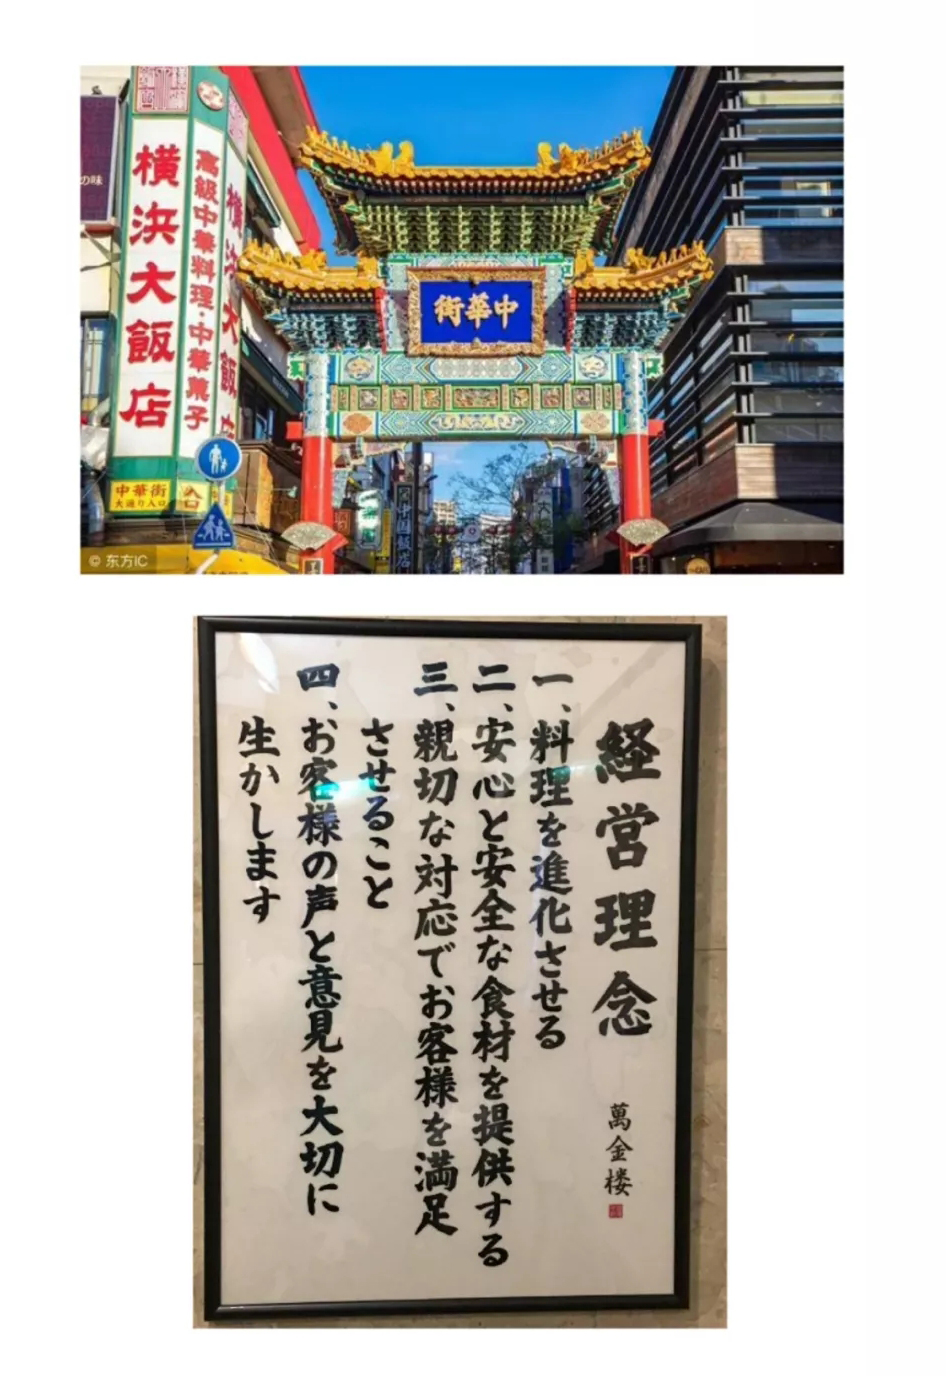 横浜大飯店
高級中華料理・中華菓子
横浜大飯店
の味
中華街
大通り入口
街華中
© 东方IC
経営理念
萬金楼
一、料理を進化させる
二、安心と安全な食材を提供する
三、親切な対応でお客様を満足
させること
四、お客様の声と意見を大切に
生かします